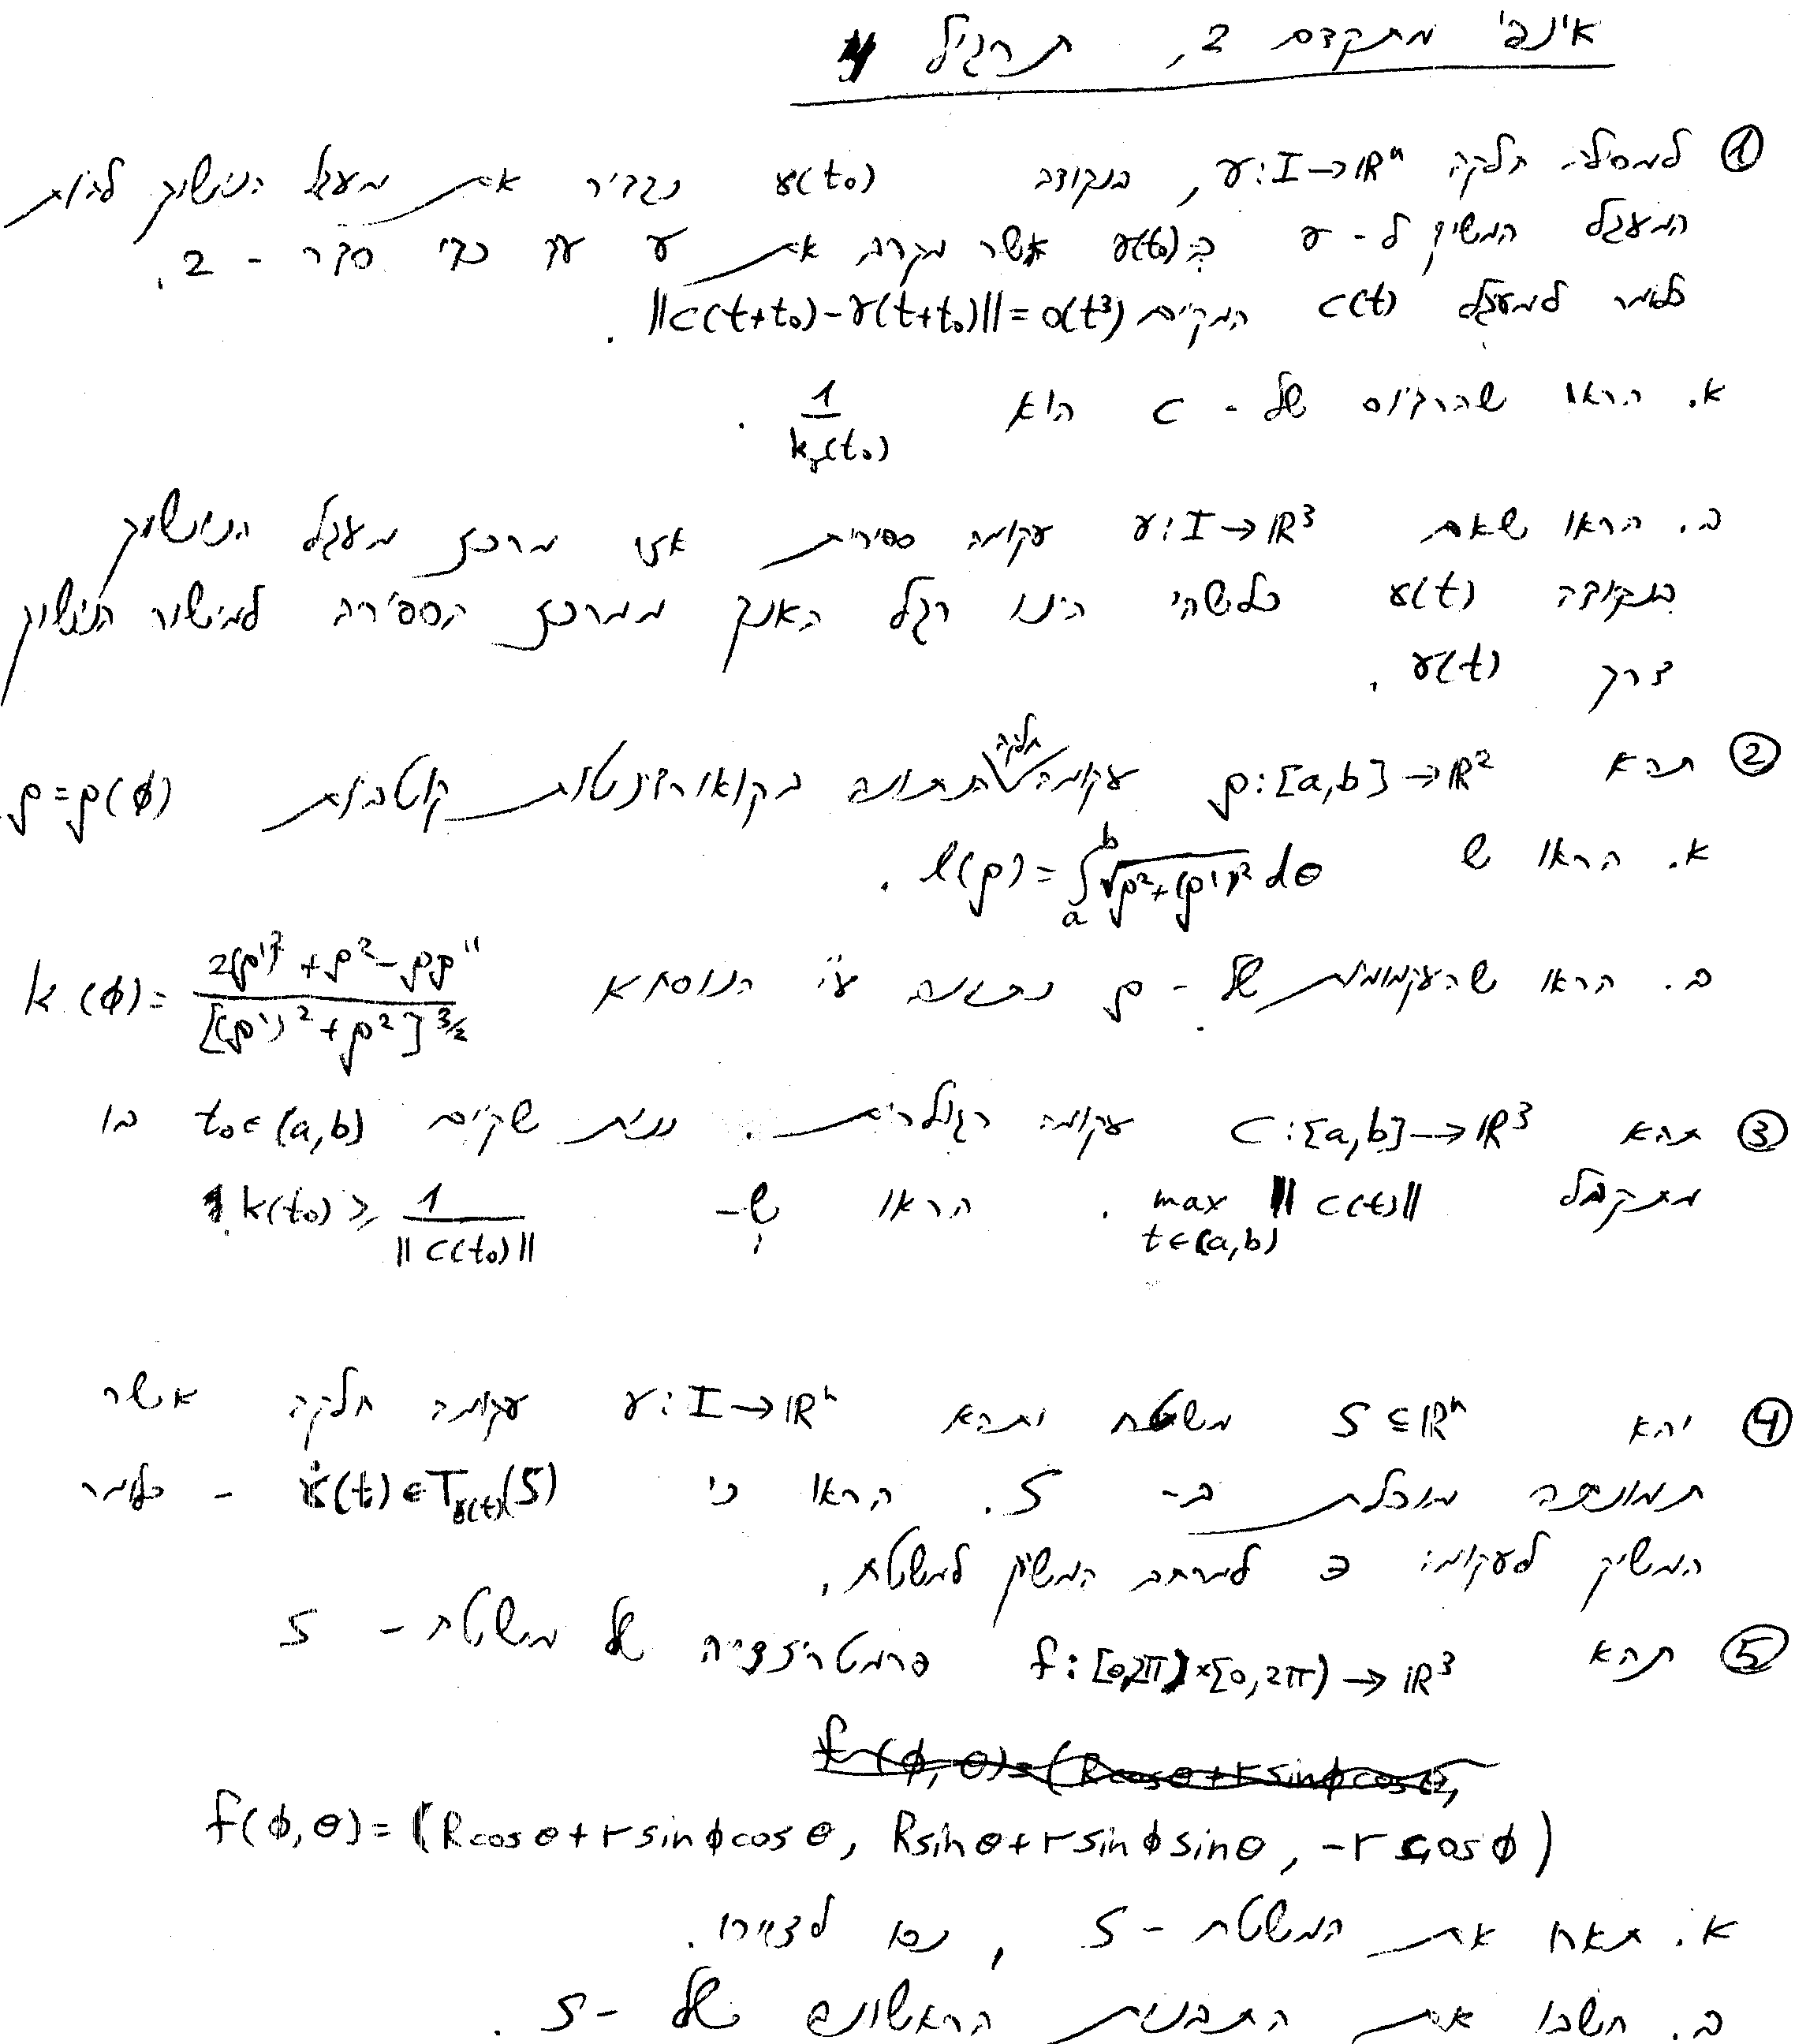 אינפי מתקדם 2, תרגיל 4
① למסילה חלקה γ: I→ℝⁿ, בנקודה γ(t₀) נגדיר את מעגל הנישוק להיות
המעגל המשיק ל-γ ב-γ(t₀) אשר מקרב את γ עד כדי סדר - 2.
כלומר למעגל c(t) המקיים ||c(t+t₀)-γ(t+t₀)|| = o(t³).
א. הראו שהרדיוס של - c הוא 1/k_γ(t₀).
ב. הראו שאם γ: I→ℝ³ עקומה ספירית אזי מרכז מעגל הנישוק
בנקודה γ(t) כלשהי הינו רגל האנך ממרכז הספירה למישור הנישוק
דרך γ(t).
② תהא ρ: [a,b]→ℝ² עקומה חלקה הנתונה בקואורדינטות קוטביות ρ=ρ(φ).
א. הראו ש l(ρ) = ∫ₐᵇ √(ρ²+(ρ')²) dθ.
ב. הראו שהעקמומיות של - ρ נתונה ע״י הנוסחא k(φ) = (2(ρ')²+ρ²-ρρ'')/[(ρ')²+ρ²]^{3/2}
③ תהא C: [a,b]→ℝ³ עקומה רגולרית. נניח שקיים t₀∈(a,b) בו
מתקבל max_{t∈(a,b)} ||C(t)||. הראו ש- k(t₀) ≥ 1/||C(t₀)||.
④ יהא S⊆ℝⁿ משטח ותהא γ: I→ℝⁿ עקומה חלקה אשר
תמונתה מוכלת ב- S. הראו כי γ̇(t)∈T_{γ(t)}(S) - כלומר
המשיק לעקומה ⊂ למרחב המשיק למשטח.
⑤ תהא f: [0,2π)×[0,2π)→ℝ³ פרמטריזציה של משטח - S
f(φ,θ) = (Rcosθ+rsinφcosθ,
f(φ,θ) = (Rcosθ+rsinφcosθ, Rsinθ+rsinφsinθ, -rcosφ)
א. תאר את המשטח - S, נסו לציירו.
ב. חשבו את התבנית הראשונה של - S.